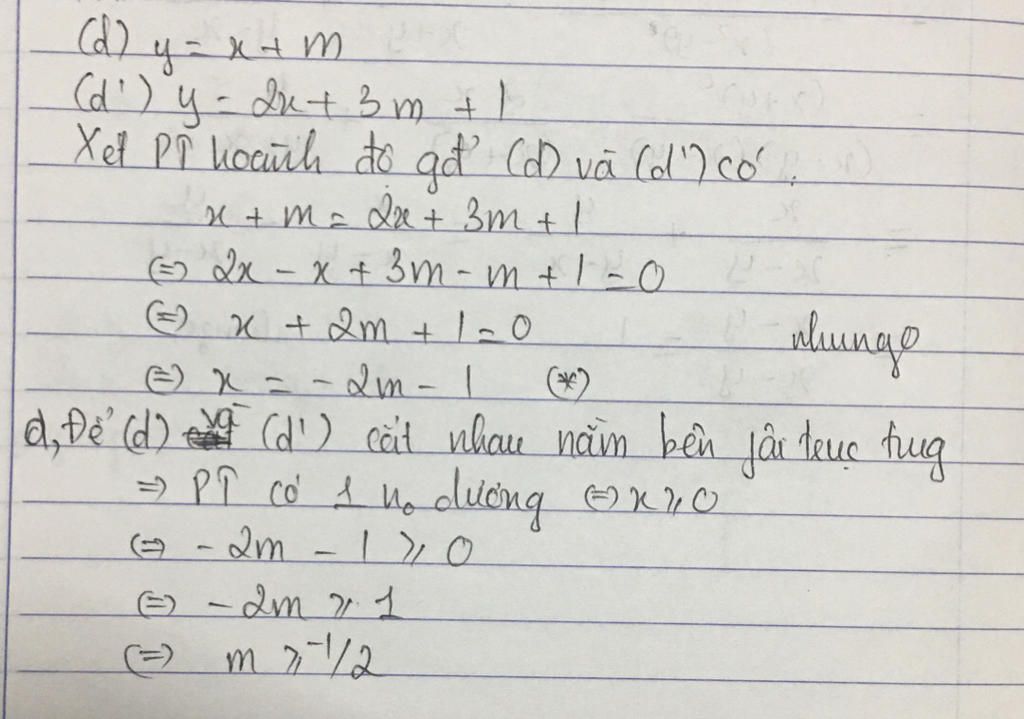 (d) y = x + m
(d') y = 2x + 3m + 1
Xét PT hoành độ gđ' (d) và (d') có :
x + m = 2x + 3m + 1
(=) 2x - x + 3m - m + 1 = 0
(=) x + 2m + 1 = 0
nhungo
(=) x = - 2m - 1 (*)
d, Để (d) và (d') cắt nhau nằm bên trục tug
=> PT có 1 no dương (=) x ⩾ 0
(=) - 2m - 1 ⩾ 0
(=) - 2m ⩾ 1
(=) m ⩾ -1/2